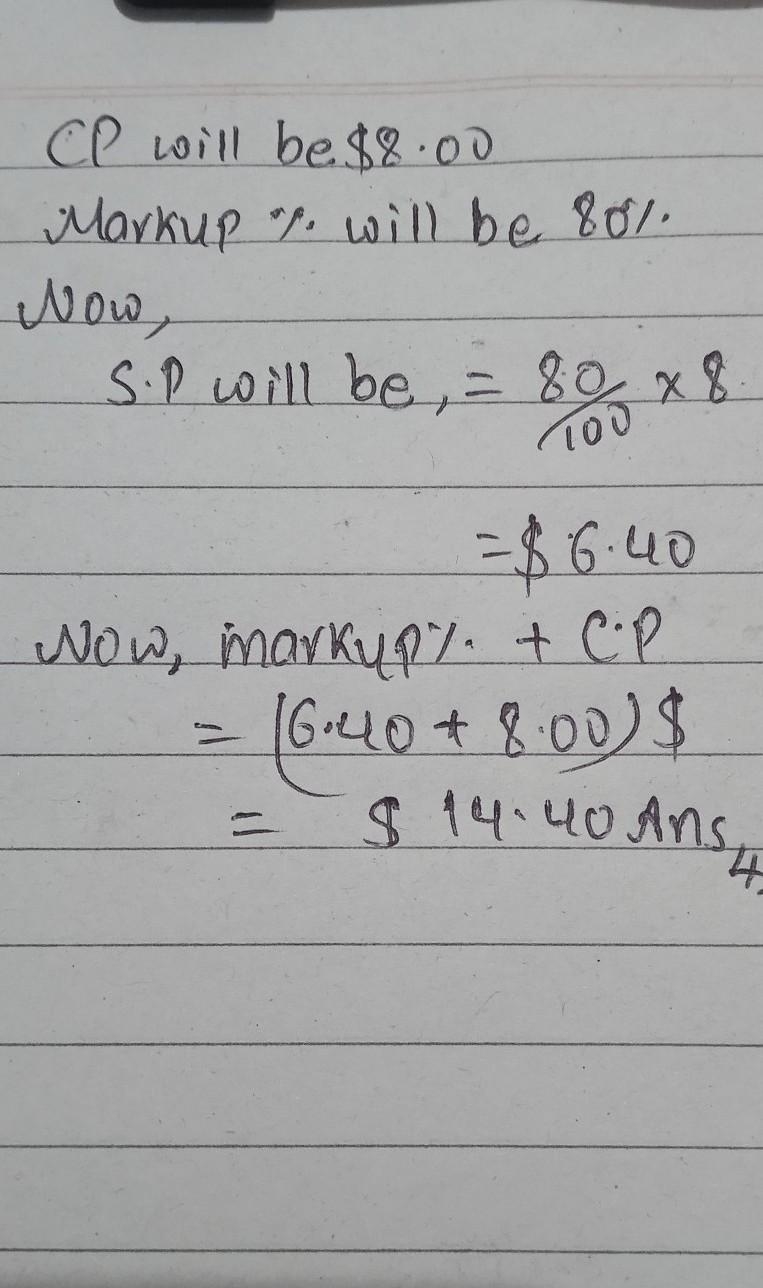 CP will be $8.00
Markup % will be 80%.
Now,
S.P will be, = 80/100 x 8.
= $ 6.40
Now, markup% + C.P
= (6.40 + 8.00) $
= $ 14.40 Ans